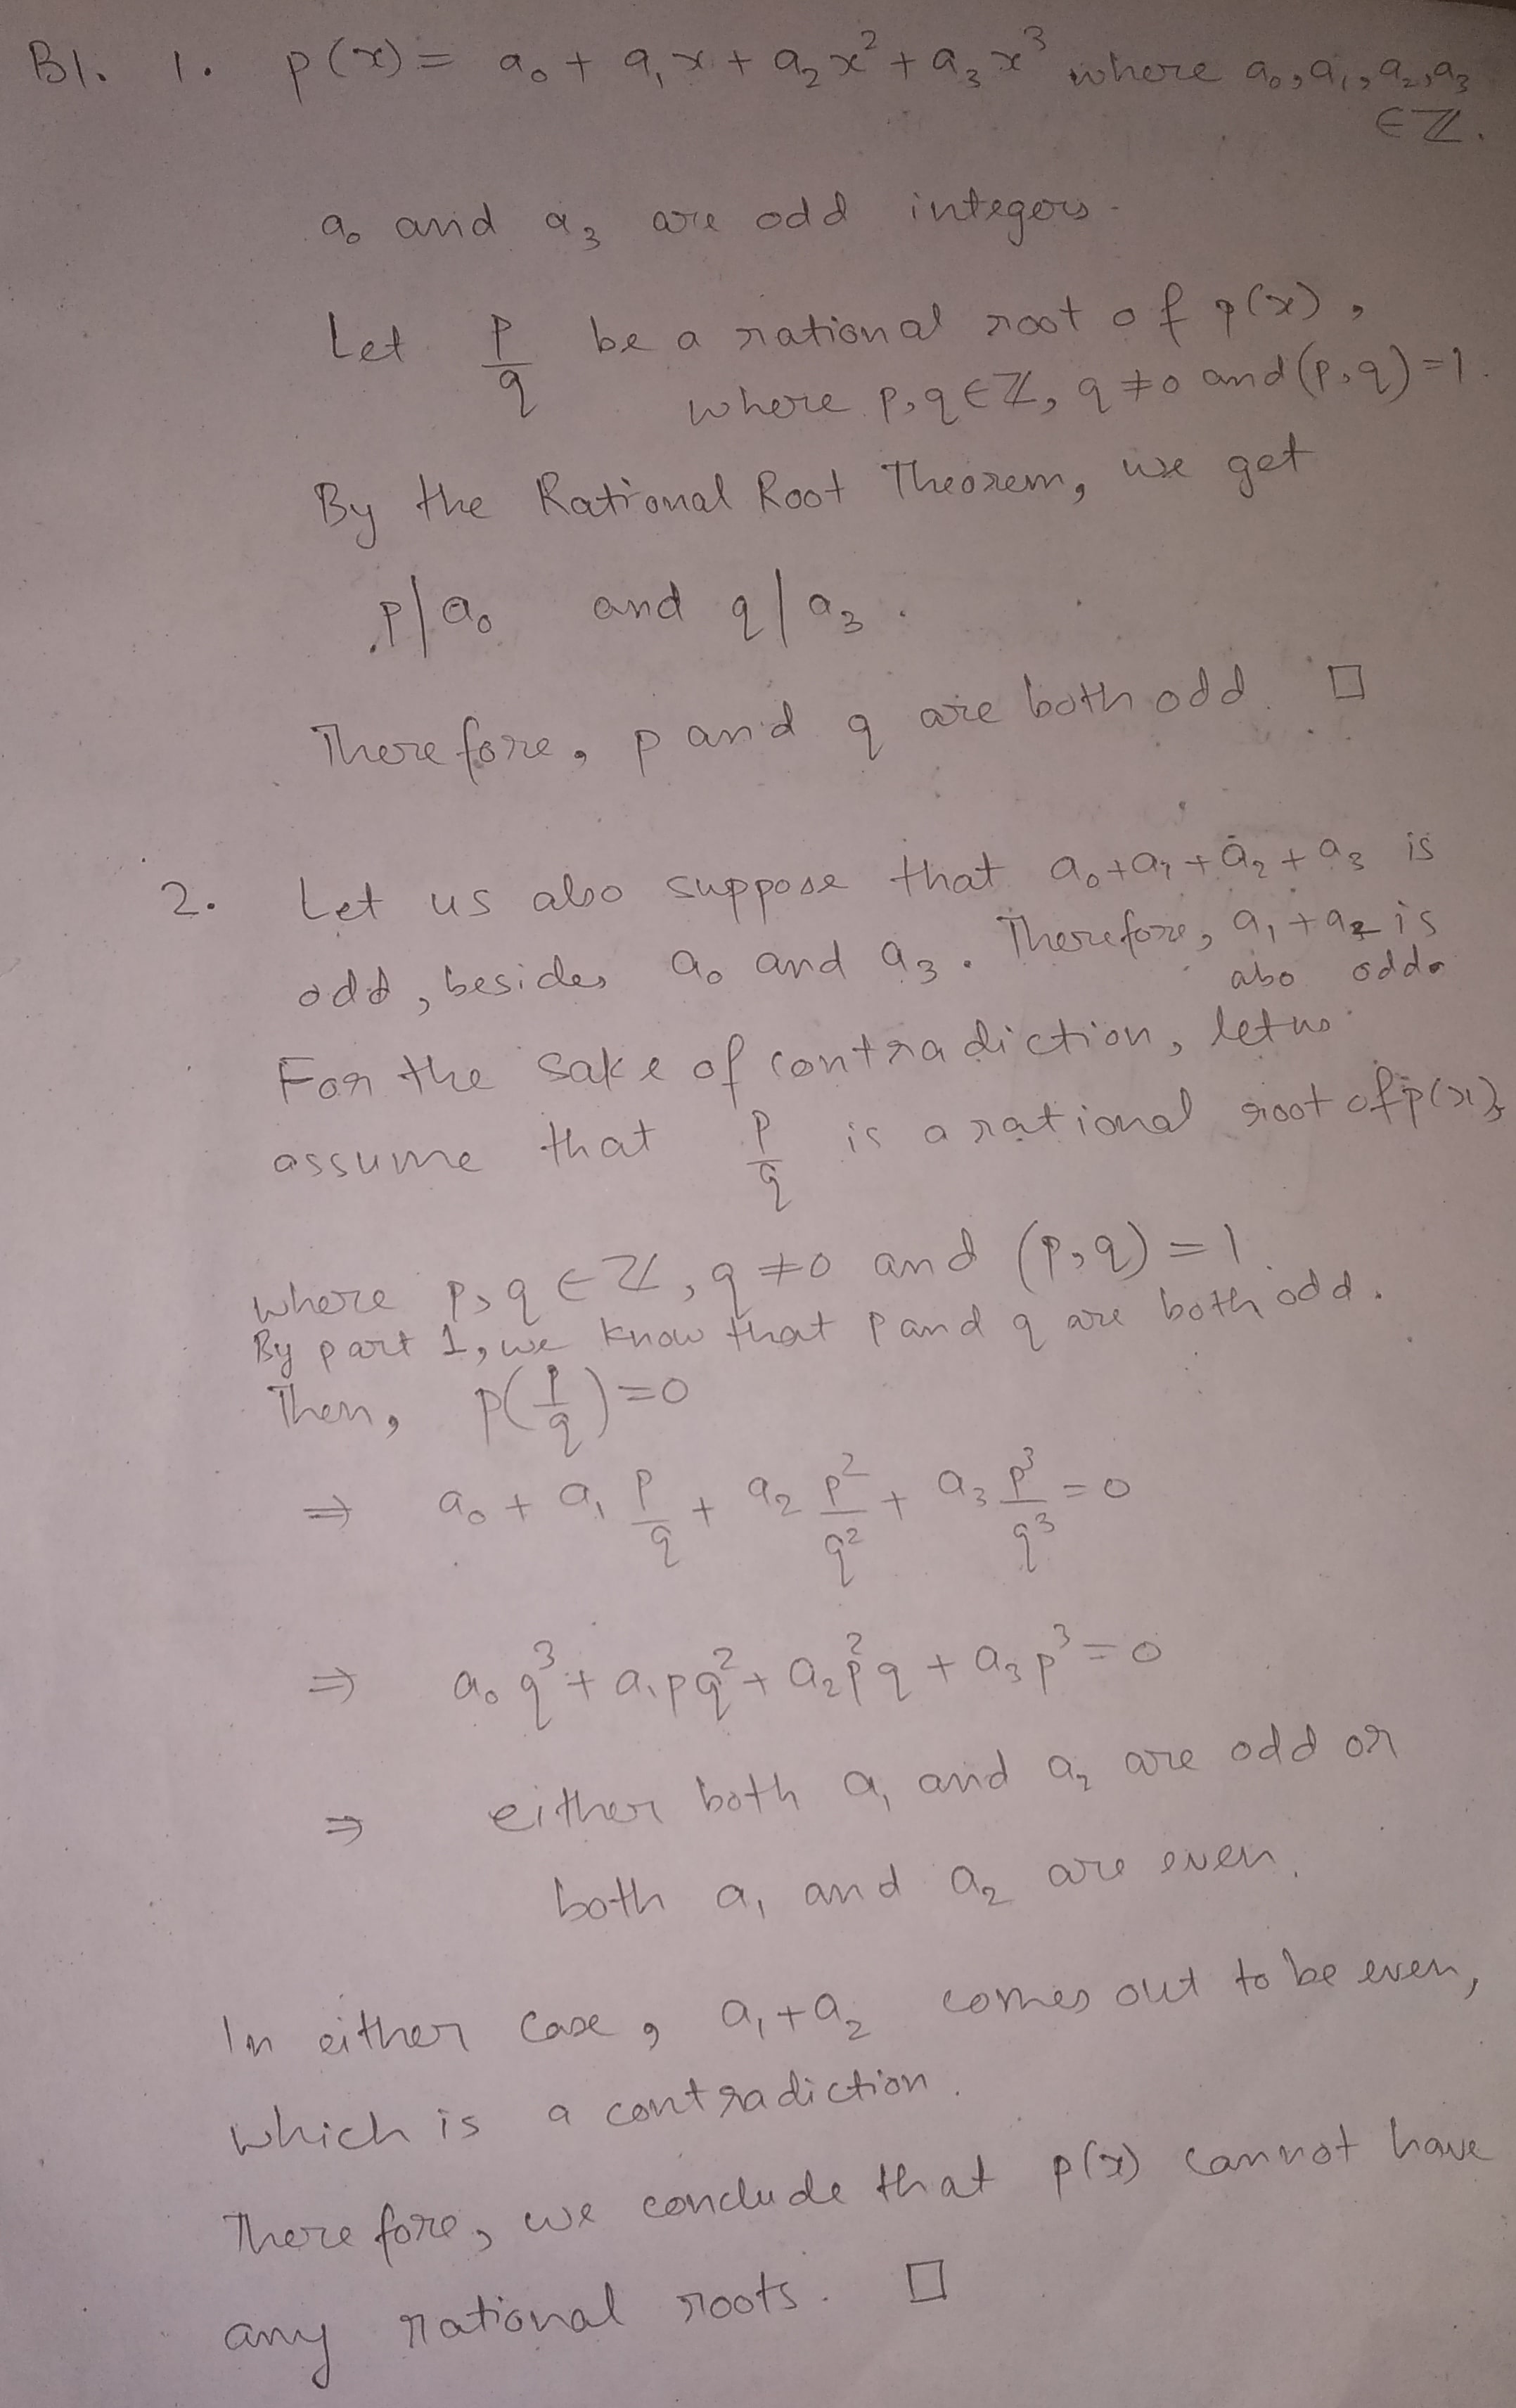 B1. 1. p(x) = a₀ + a₁x + a₂x² + a₃x³ where a₀, a₁, a₂, a₃
∈ ℤ.
a₀ and a₃ are odd integers.
Let p/q be a rational root of p(x),
where p, q ∈ ℤ, q ≠ 0 and (p, q) = 1.
By the Rational Root Theorem, we get
p | a₀ and q | a₃.
Therefore, p and q are both odd. □
2. Let us also suppose that a₀ + a₁ + a₂ + a₃ is
odd, besides a₀ and a₃. Therefore, a₁ + a₂ is
also odd.
For the sake of contradiction, let us
assume that p/q is a rational root of p(x),
where p, q ∈ ℤ, q ≠ 0 and (p, q) = 1
By part 1, we know that p and q are both odd.
Then, p(p/q) = 0
⇒ a₀ + a₁ p/q + a₂ p²/q² + a₃ p³/q³ = 0
⇒ a₀q³ + a₁pq² + a₂p²q + a₃p³ = 0
⇒ either both a₁ and a₂ are odd or
both a₁ and a₂ are even.
In either case, a₁ + a₂ comes out to be even,
which is a contradiction.
Therefore, we conclude that p(x) cannot have
any rational roots. □